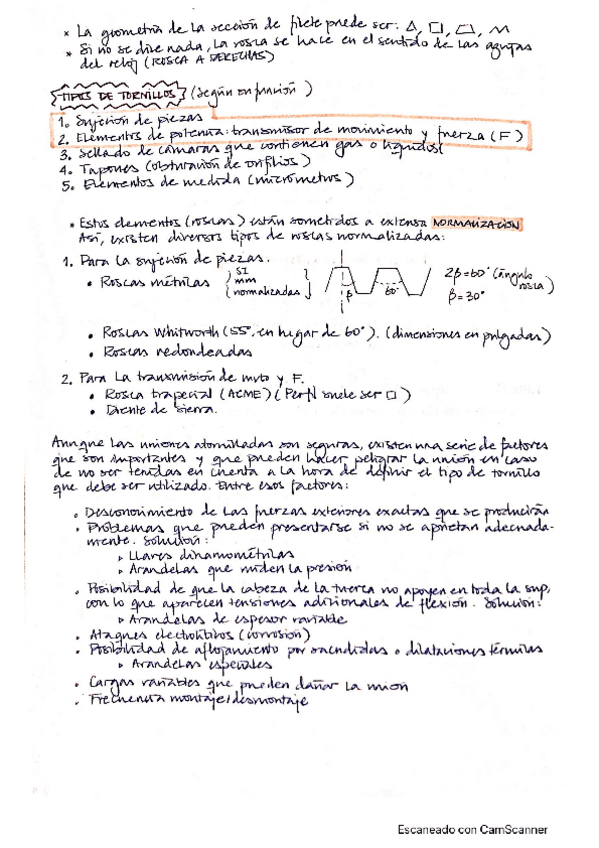 * La geometría de la sección de filete puede ser: △, □, ⏢, ʌʌ
* Si no se dice nada, la rosca se hace en el sentido de las agujas
del reloj (ROSCA A DERECHAS)
TIPOS DE TORNILLOS (según su función)
1. Sujeción de piezas
2. Elementos de potencia: transmisor de movimiento y fuerza (F)
3. Sellado de cámaras que contienen gas o líquidos
4. Tapones (obturación de orificios)
5. Elementos de medida (micrómetros)
• Estos elementos (roscas) están sometidos a extensa NORMALIZACIÓN
Así, existen diversos tipos de roscas normalizadas:
1. Para la sujeción de piezas.
• Roscas métricas
SI
mm
normalizadas
β
60°
2β=60° (ángulo rosca)
β=30°
• Roscas Whitworth (55°, en lugar de 60°). (dimensiones en pulgadas)
• Roscas redondeadas
2. Para la transmisión de mvto y F.
• Rosca trapecial (ACME) (Perfil suele ser □)
• Diente de sierra.
Aunque las uniones atornilladas son seguras, existen una serie de factores
que son importantes y que pueden hacer peligrar la unión en caso
de no ser tenidas en cuenta a la hora de definir el tipo de tornillo
que debe ser utilizado. Entre esos factores:
• Desconocimiento de las fuerzas exteriores exactas que se producirán
• Problemas que pueden presentarse si no se aprietan adecuada-
mente. Solución:
▹ Llaves dinamométricas
▹ Arandelas que miden la presión
• Posibilidad de que la cabeza de la tuerca no apoyen en toda la sup,
con lo que aparecen tensiones adicionales de flexión. Solución:
▹ Arandelas de espesor variable
• Ataques electrolíticos (corrosión)
• Posibilidad de aflojamiento por sacudidas o dilataciones térmicas
▹ Arandelas especiales
• Cargas variables que pueden dañar la unión
• Frecuencia montaje/desmontaje
Escaneado con CamScanner